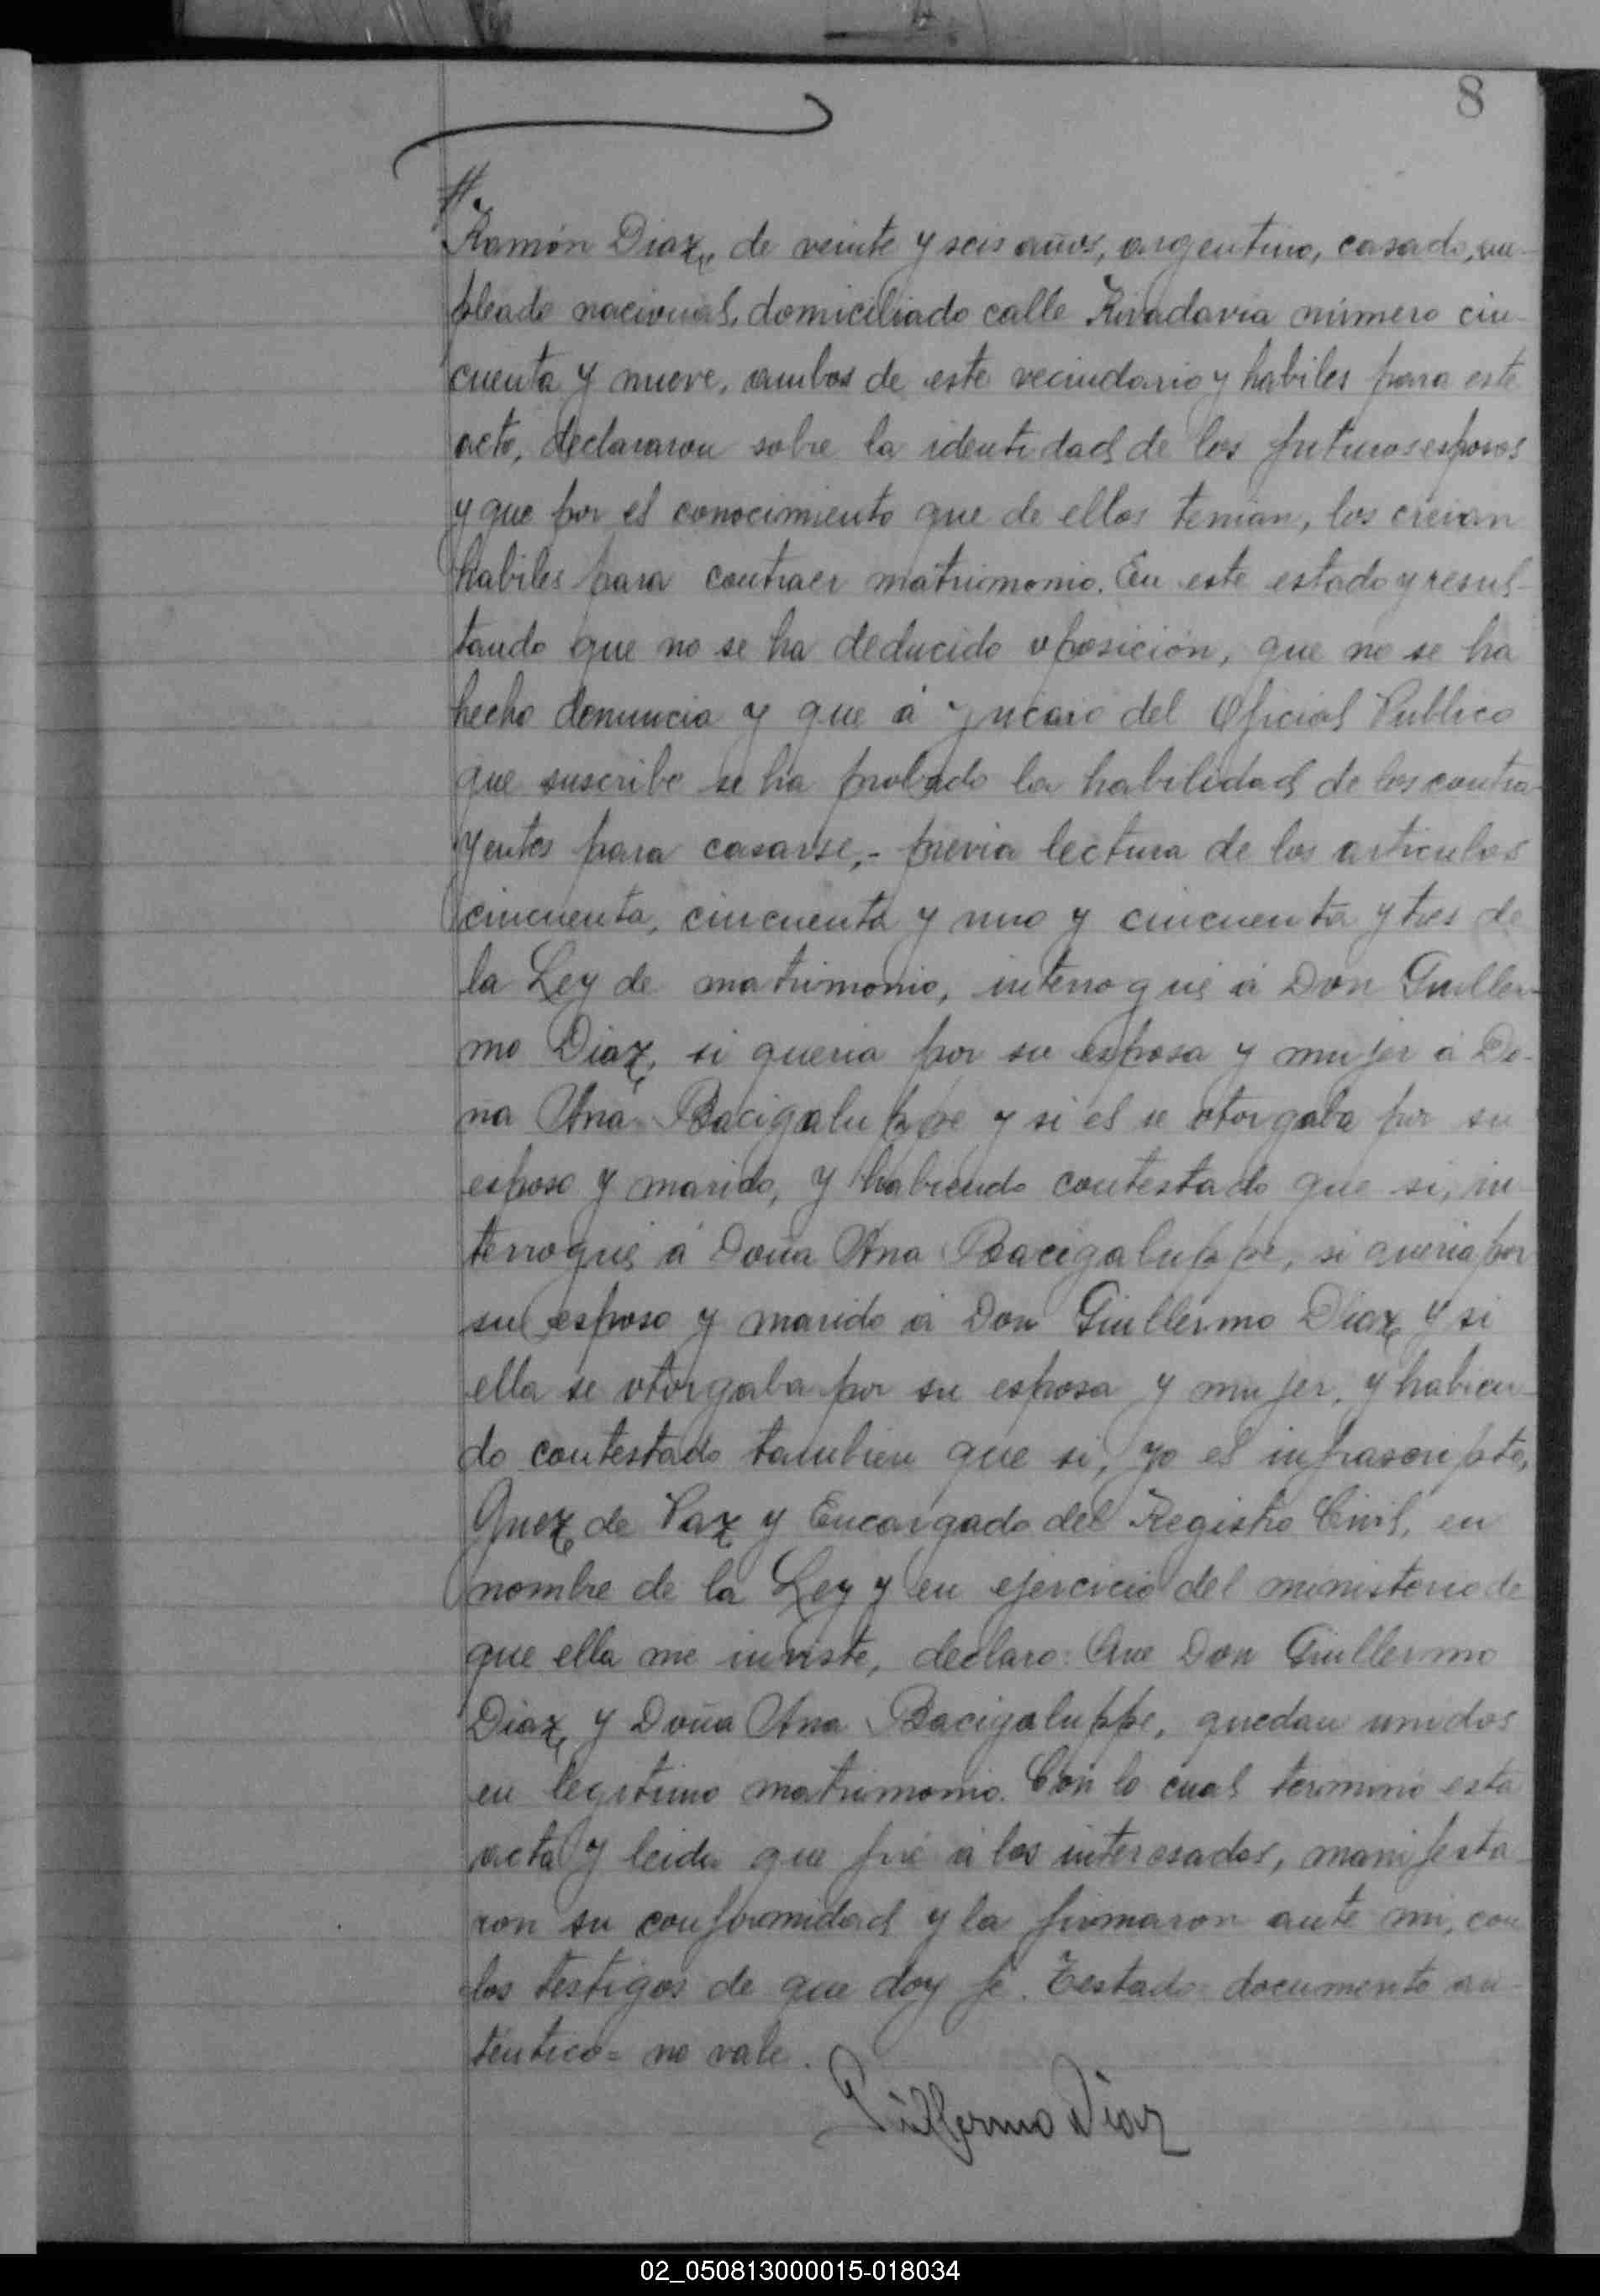 8
Ramón Diaz, de veinte y seis años, argentino, casado, em-
pleado nacional, domiciliado calle Rivadavia número cin-
cuenta y nueve, ambos de este vecindario y habiles para este
acto, declararon sobre la identidad de los futuros esposos
y que por el conocimiento que de ellos tenian, los creian
habiles para contraer matrimonio. En este estado y resul-
tando que no se ha deducido oposición, que no se ha
hecho denuncia y que á del Oficial Publico
que suscribe se ha probado la habilidad de los contra-
yentes para casarse,- previa lectura de los articulos
cincuenta, cincuenta y uno y cincuenta y tres de
la Ley de matrimonio, interrogué á Don Guiller-
mo Diaz, si queria por su esposa y mujer á Do-
ña Ana Bacigaluppe y si el se otorgaba por su
esposo y marido, y habiendo contestado que si, in-
terrogué á Doña Ana Bacigaluppe, si queria por
su esposo y marido á Don Guillermo Diaz y si
ella se otorgaba por su esposa y mujer, y habien-
do contestado tambien que si, yo el infrascripto,
Juez de Paz y Encargado del Registro Civil, en
nombre de la Ley y en ejercicio del ministerio de
que ella me inviste, declaro: Que Don Guillermo
Diaz, y Doña Ana Bacigaluppe, quedan unidos
en legitimo matrimonio. Con lo cual terminó esta
acta y leida que fué á los interesados, manifesta-
ron su conformidad y la firmaron ante mi, con
los testigos de que doy fé. Testado= documento au-
téntico= no vale.
Guillermo Diaz
02_050813000015-018034